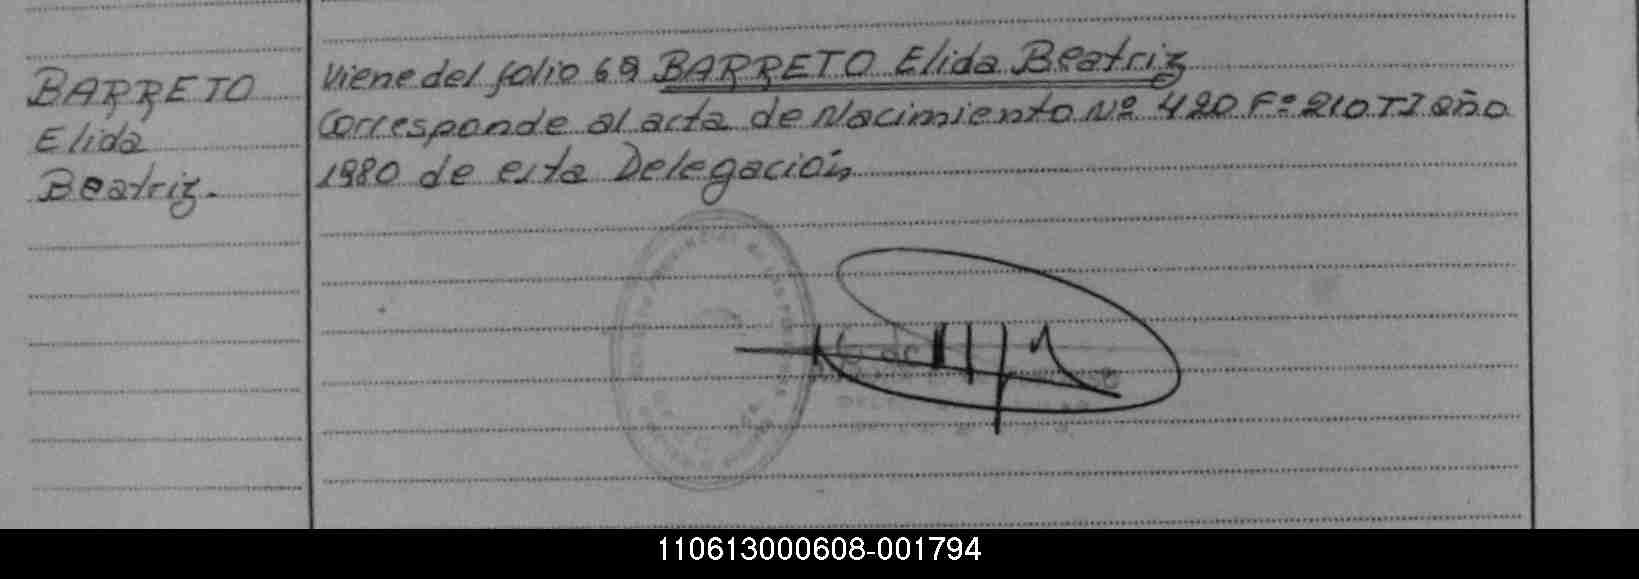 BARRETO
Elida
Beatriz.
Viene del folio 69 BARRETO Elida Beatriz
Corresponde al acta de Nacimiento Nº 420 Fº 210 TI año
1980 de esta Delegación
110613000608-001794